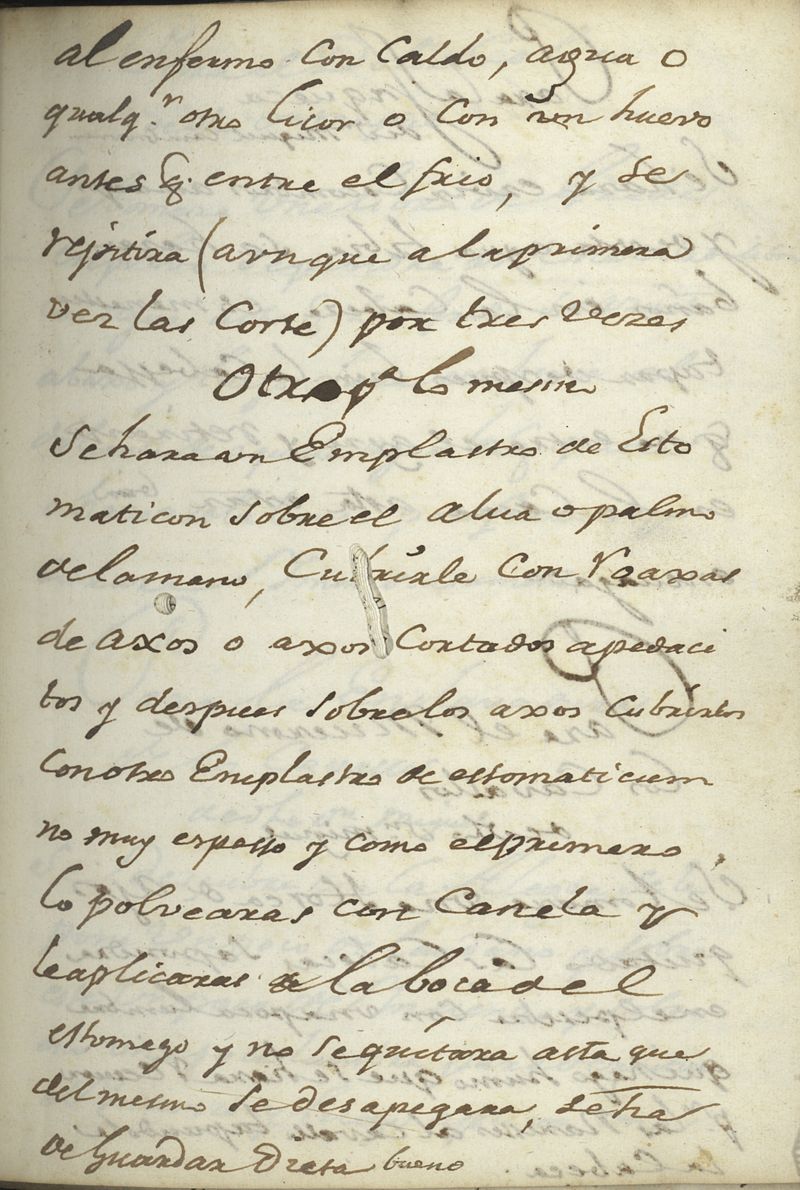 al enfermo Con Caldo, agua o
qualq.r otro licor o Con un huevo
antes q. entre el frio, y se
rejntira (avnque a la primera
vez las Corte) por tres vezes
Otro pa lo mesmo
Se hara un Emplastro de Esto
maticon sobre el alua o palmo
de la mano, Cubrirle Con raaxas
de axos o axos Cortados a pedaci
tos y despues sobre los axos Cubrirlos
con otro Emplastro de estomaticum
no muy espesso y como el primero,
lo polvearas con Canela y
le aplicaras a la boca del
estomago y no se quitara asta que
del mesmo se desapegara, se ha
de Guardar Dieta bueno